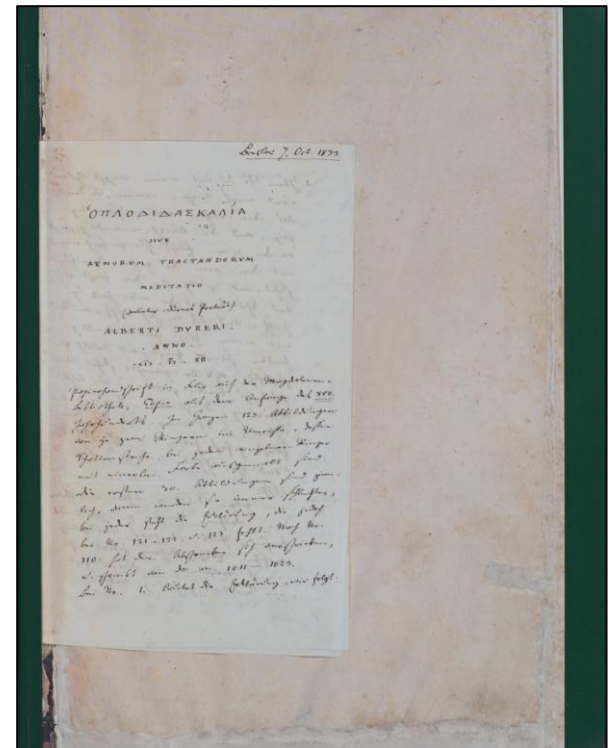 Breslau 7. Oct. 1833.
ὉΠΛΟΔΙΔΑΣΚΑΛΊΑ
SIVE
ARMORVM TRACTANDORVM
MEDITATIO
ALBERTI DVRERI.
ANNO.
Papierhandschrift in Folio auf der Magdalenen-
Bibliothek, Copie aus dem Anfange des XVII.
Jahrhunderts. Im Ganzen 123 Abbildungen
von je zwei Ringern im Umrisse, deren
bei jedem einzelnen Ringer
mit Farbe ausgemalt sind.
die ersten 30. Abbildungen sind ziem-
lich, dann werden sie immer schlechter,
bei jeder steht die Erklärung, die jedoch
bei Nr. 121. 122. u. 123 fehlt. Nach Nr.
110. hat der Abschreiber sich verschrieben,
u. schreibt von da an 1011 - 1023.
Bei Nr. 1. lautet die Erklärung wie folgt: